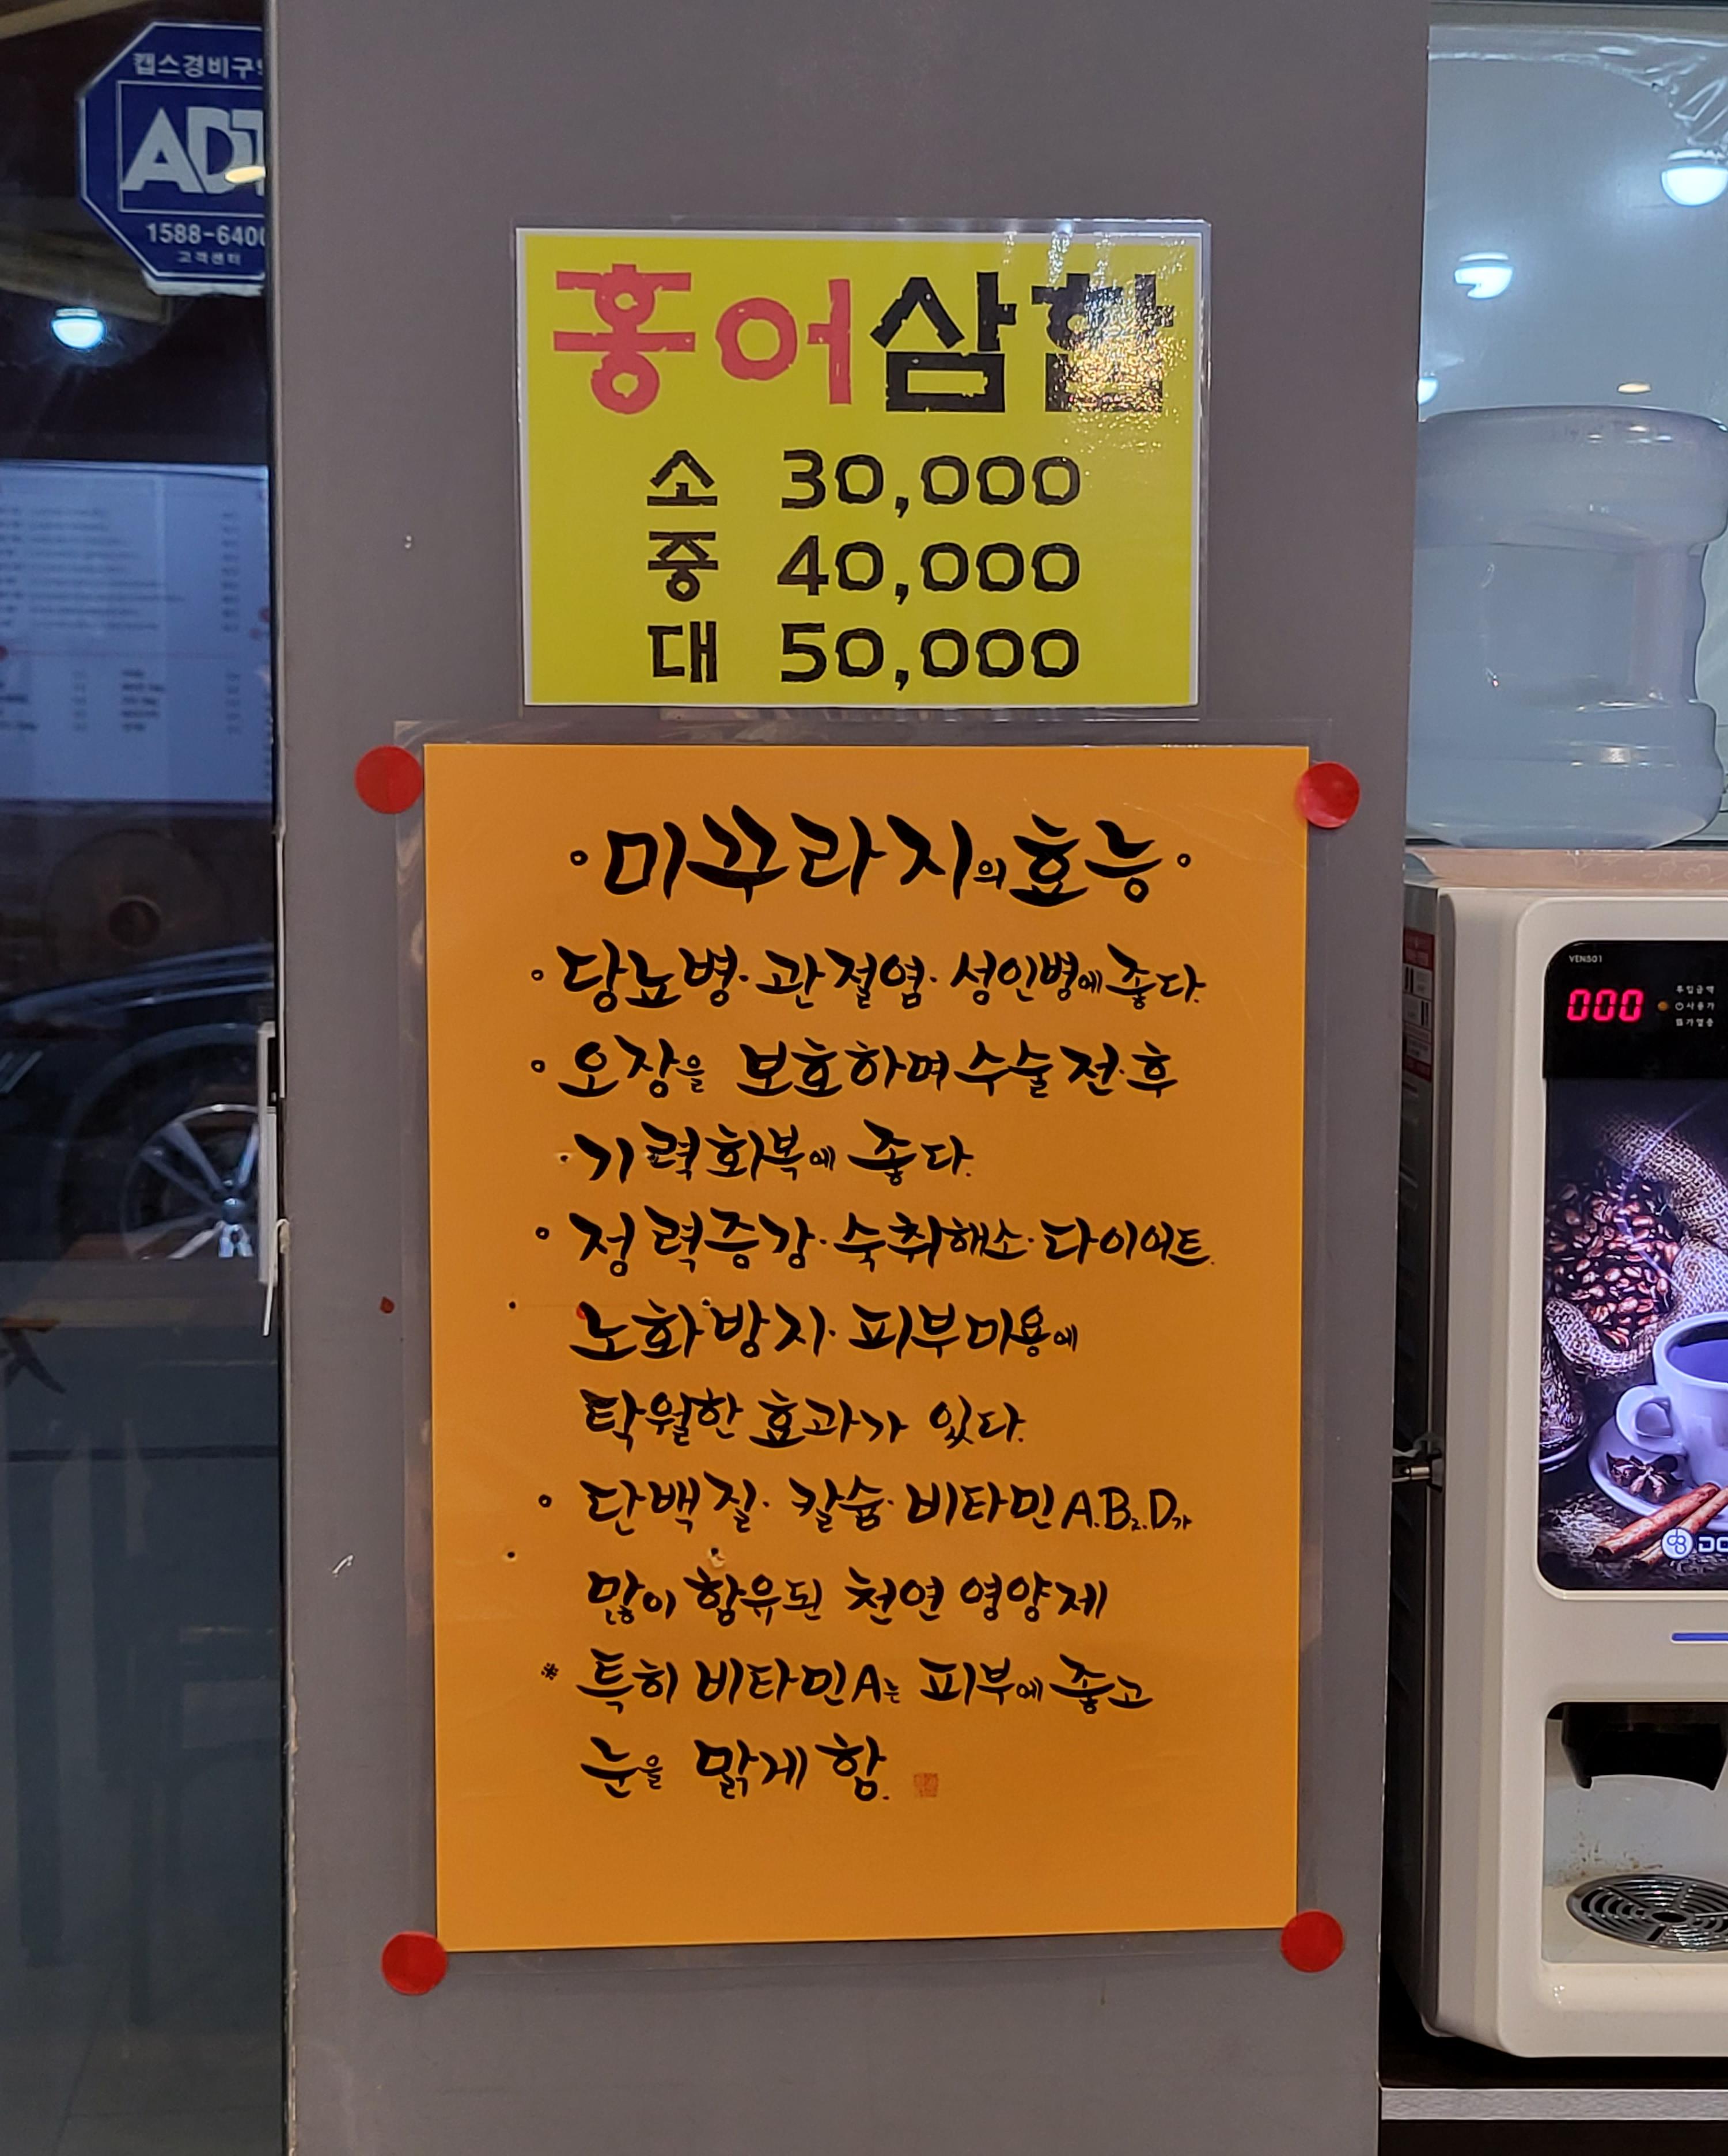 캡스경비구
ADT
1588-640
고객센터
홍어삼합
소 30,000
중 40,000
대 50,000
미꾸라지의 효능
당뇨병·관절염·성인병에 좋다.
오장을 보호하며 수술전·후
기력회복에 좋다.
정력증강·숙취해소·다이어트.
노화방지·피부미용에
탁월한 효과가 있다.
단백질·칼슘·비타민A.B₂.D가
많이 함유된 천연 영양제
※ 특히 비타민A는 피부에 좋고
눈을 맑게 함.
VEN501
000
투입금액
사용가
품가열중
DO